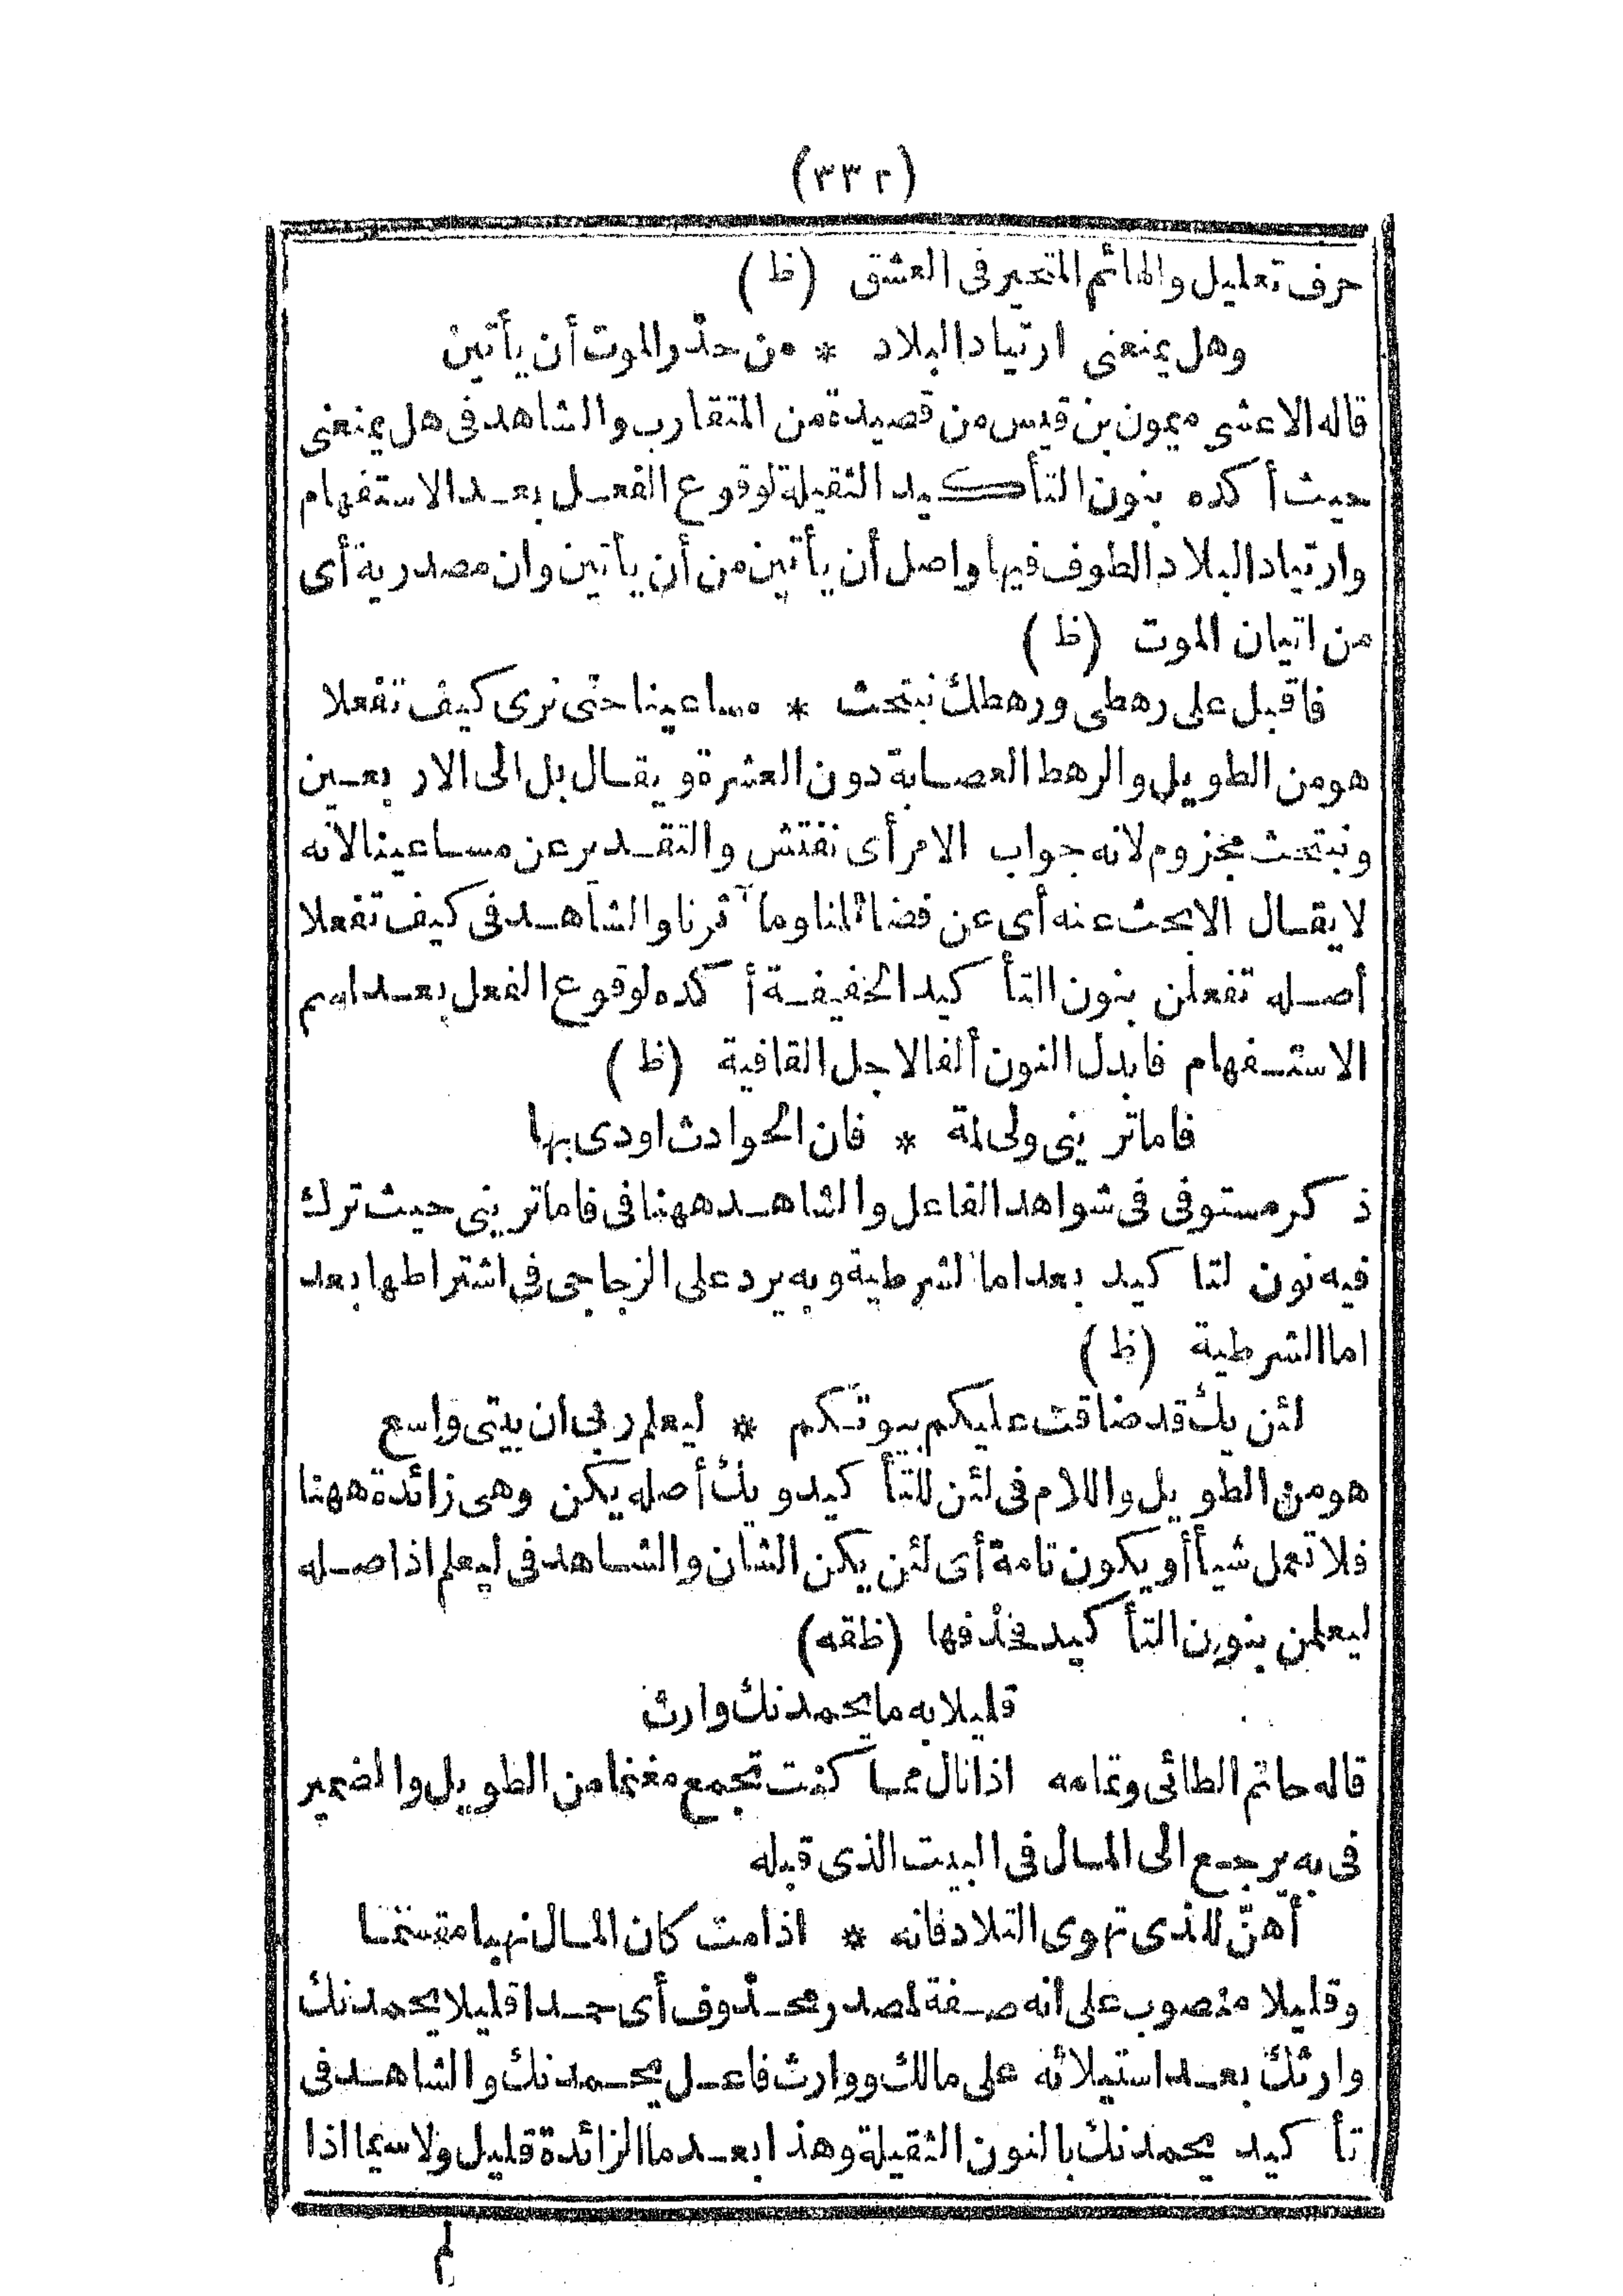 (٣٣٢)
حرف تعليل والهائم المتحير فى العشق (ظ)
وهل يمنعنى ارتياد البلاد * من حذر الموت أن يأتين
قاله الاعشى ميمون بن قيس من قصيدة من المتقارب والشاهد فى هل يمنعنى
حيث أكده بنون التأكيد الثقيلة لوقوع الفعل بعد الاستفهام
وارتياد البلاد الطوف فيها واصل أن يأتين من أن يأتين وان مصدرية أى
من اتيان الموت (ظ)
فاقبل على رهطى ورهطك نبتحث * مساعينا حتى نرى كيف تفعلا
هو من الطويل والرهط العصابة دون العشرة ويقال بل الى الاربعين
ونبتحث مجزوم لانه جواب الامر أى نفتش والتقدير عن مساعينا لانه
لا يقال الابحث عنه أى عن فضائلنا ومآثرنا والشاهد فى كيف تفعلا
أصله تفعلن بنون التأكيد الخفيفة أكده لوقوع الفعل بعد اسم
الاستفهام فابدل النون ألفا لاجل القافية (ظ)
فاما ترينى ولى لمة * فان الحوادث اودى بها
ذكر مستوفى فى شواهد الفاعل والشاهد ههنا فى فاما ترينى حيث ترك
فيه نون لتاكيد بعد اما لشرطية وبه يرد على الزجاجى فى اشتراطها بعد
اما الشرطية (ظ)
لئن يك قد ضاقت عليكم بيوتكم * ليعلم ربى ان بيتى واسع
هو من الطويل واللام فى لئن للتأكيد ويك أصله يكن وهى زائدة ههنا
فلا تعمل شيأ أو يكون تامة أى لئن يكن الشان والشاهد فى ليعلم اذ اصله
ليعلمن بنون التأكيد فحذفها (ظقه)
قليلا به ما يحمدنك وارث
قاله حاتم الطائى وتمامه اذا نال مما كنت تجمع مغنما من الطويل والضمير
فى به يرجع الى المال فى البيت الذى قبله
أهنّ للذى تهوى التلاد فانه * اذا مت كان المال نهبا مقسما
وقليلا منصوب على أنه صفة لمصدر محذوف أى حمدا قليلا يحمدنك
وارثك بعد استيلائه على مالك ووارث فاعل يحمدنك والشاهد فى
تأكيد يحمدنك بالنون الثقيلة وهذا بعد ما الزائدة قليل ولاسيما اذا
لم